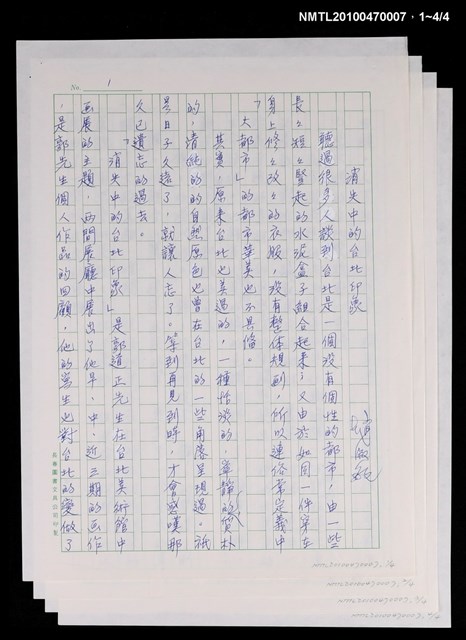 NMTL20100470007，1~4/4
No. 1
消失中的台北印象
聽過很多人談到台北是一個沒有個性的都市，由一些
長長短短豎起的水泥盒子組合起來，又由於如同一件穿在
身上修修改改的衣服，沒有整体規劃，所以連俗常定義中
「大都市」的都市華美也不具備。
其實，原來台北也美過的，一種恬淡的，寧靜的質朴
的，清純的的自然原色也曾在台北的一些角隱呈現過。祇
是日子久遠了，就讓人忘了。等到再見到時，才會感嘆那
久已遺忘的過去。
「消失中的台北印象」是郭道正先生在台北美術館中
畫展的主題，兩間展廳中展出了他早、中、近三期的畫作
，是郭先生個人作品的回顧，他的寫生也對台北的變做了